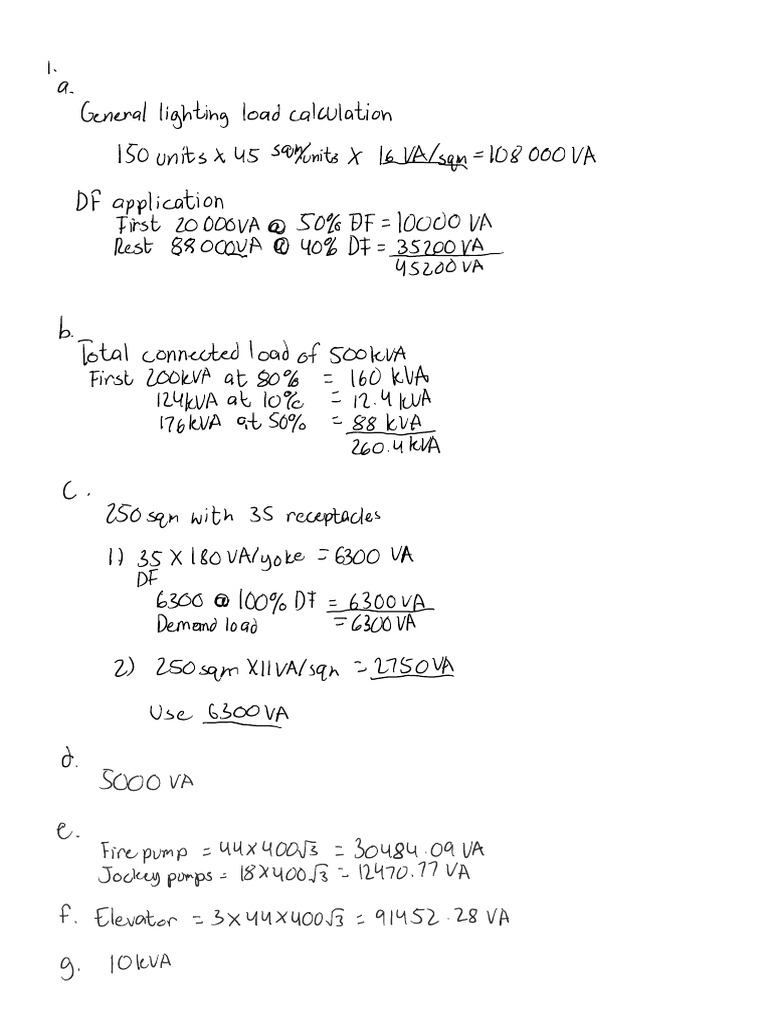 1.
a.
General lighting load calculation
150 units x 45 sqm/units x 16 VA/sqm = 108 000 VA
DF application
First 20 000VA @ 50% DF = 10000 VA
Rest 88 000VA @ 40% DF = 35200 VA
45200 VA
b.
Total connected load of 500kVA
First 200kVA at 80% = 160 kVA
124kVA at 10% = 12.4 kVA
176kVA at 50% = 88 kVA
260.4 kVA
c.
250 sqm with 35 receptacles
1) 35 x 180 VA/yoke = 6300 VA
DF
6300 @ 100% DF = 6300 VA
Demand load = 6300 VA
2) 250 sqm x 11 VA/sqm = 2750 VA
Use 6300 VA
d.
5000 VA
e.
Fire pump = 44 x 400√3 = 30484.09 VA
Jockey pumps = 18 x 400√3 = 12470.77 VA
f. Elevator = 3 x 44 x 400√3 = 91452.28 VA
g. 10kVA